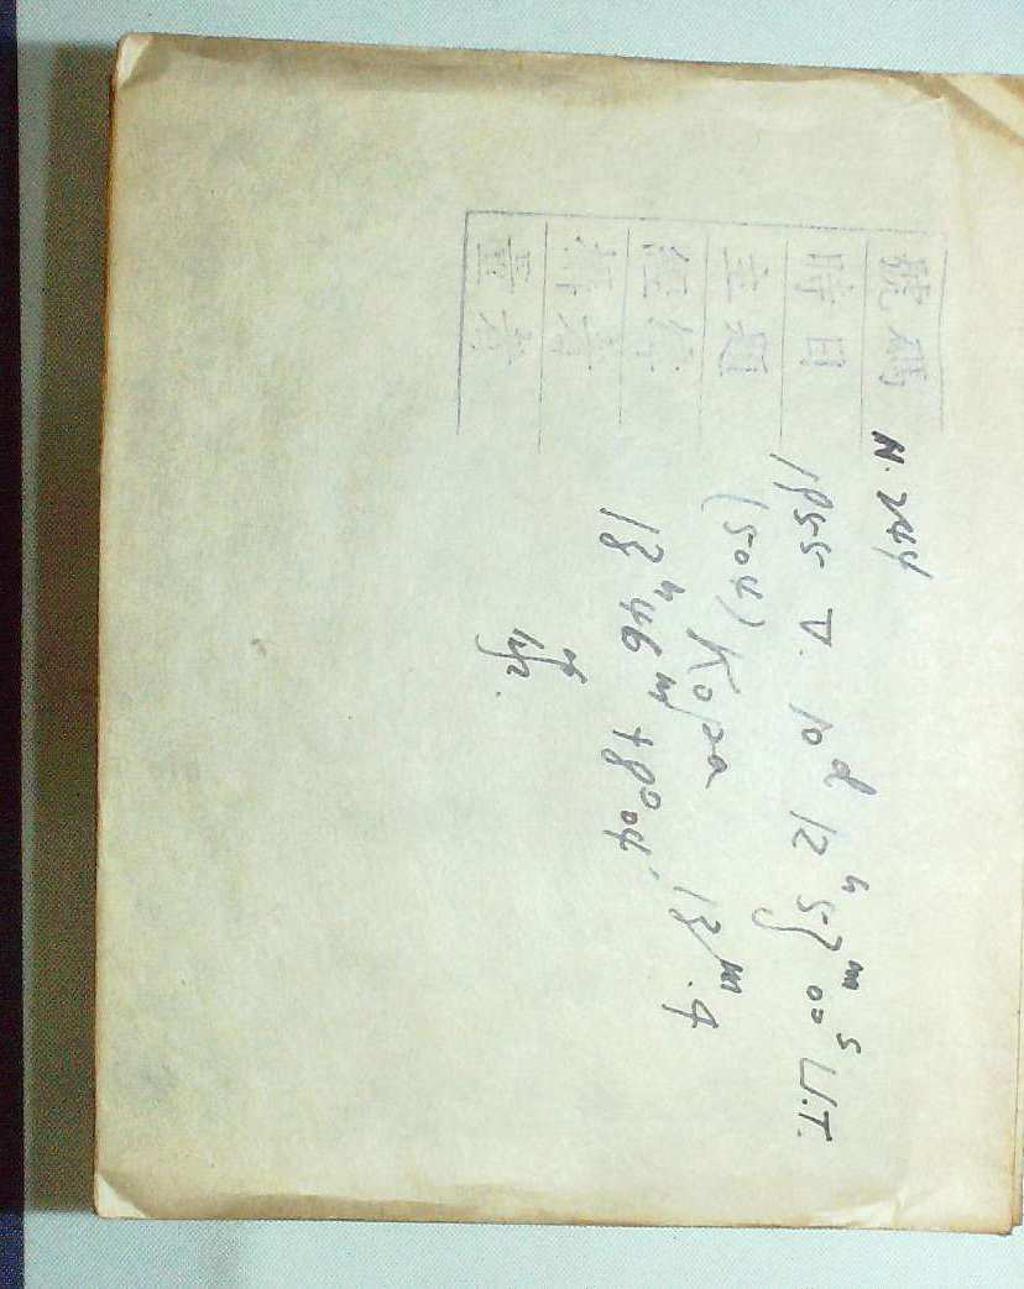 號碼 N. 244
時日 1955 V. 10ᵈ 12ʰ 53ᵐ 00ˢ U.T.
主題 (504) Cora 13ᵐ.9
經緯 13ʰ46ᵐ +8°09'
攝者
量者